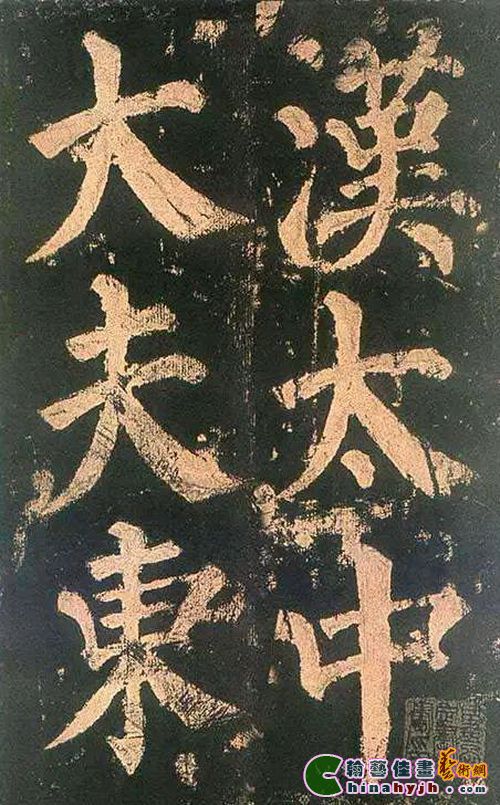 漢太中
大夫東
翰藝佳畫藝術網
Chinahyjh.com